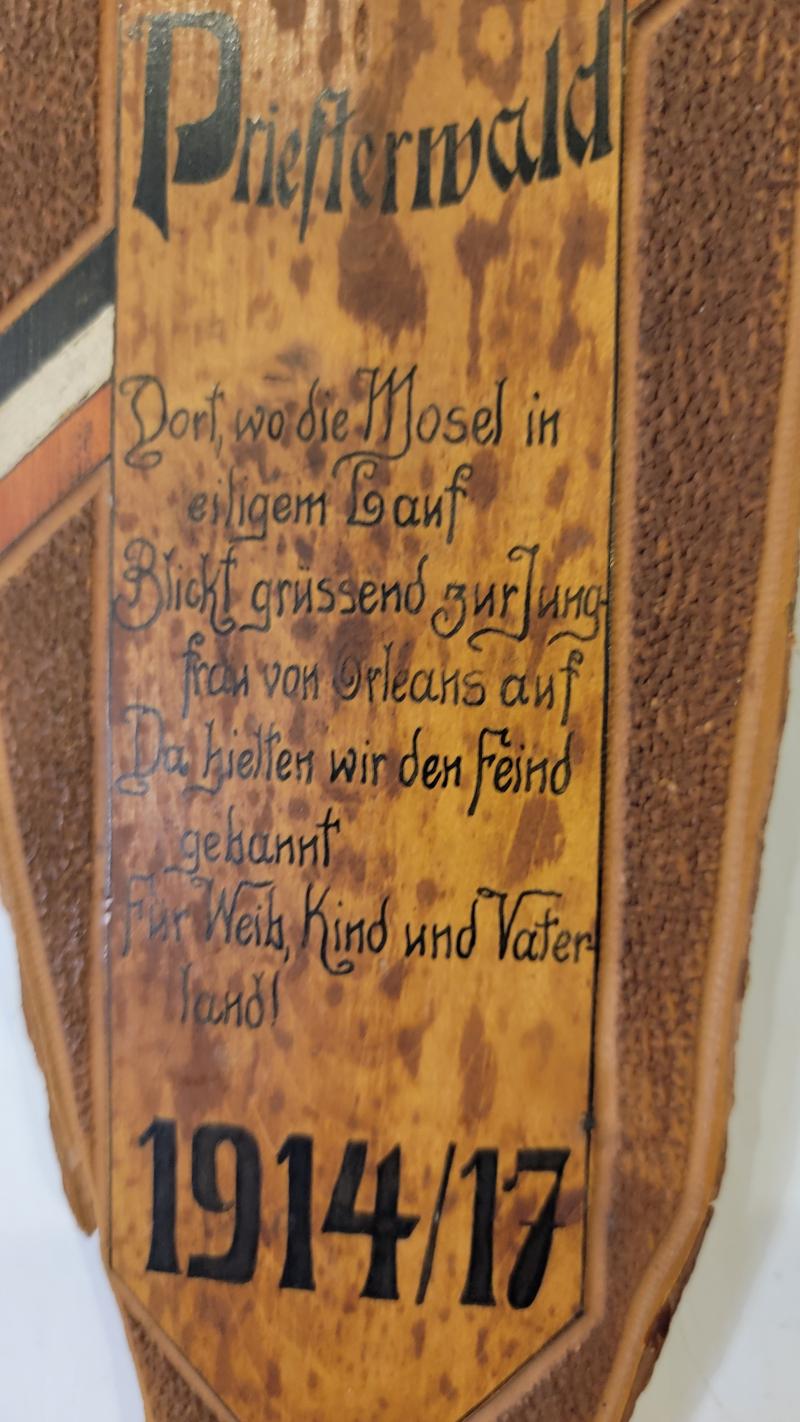 Priesterwald
Dort, wo die Mosel in
eiligem Lauf
Blickt grüssend zur Jung-
frau von Orleans auf
Da hielten wir den Feind
gebannt
Für Weib, Kind und Vater-
land!
1914/17